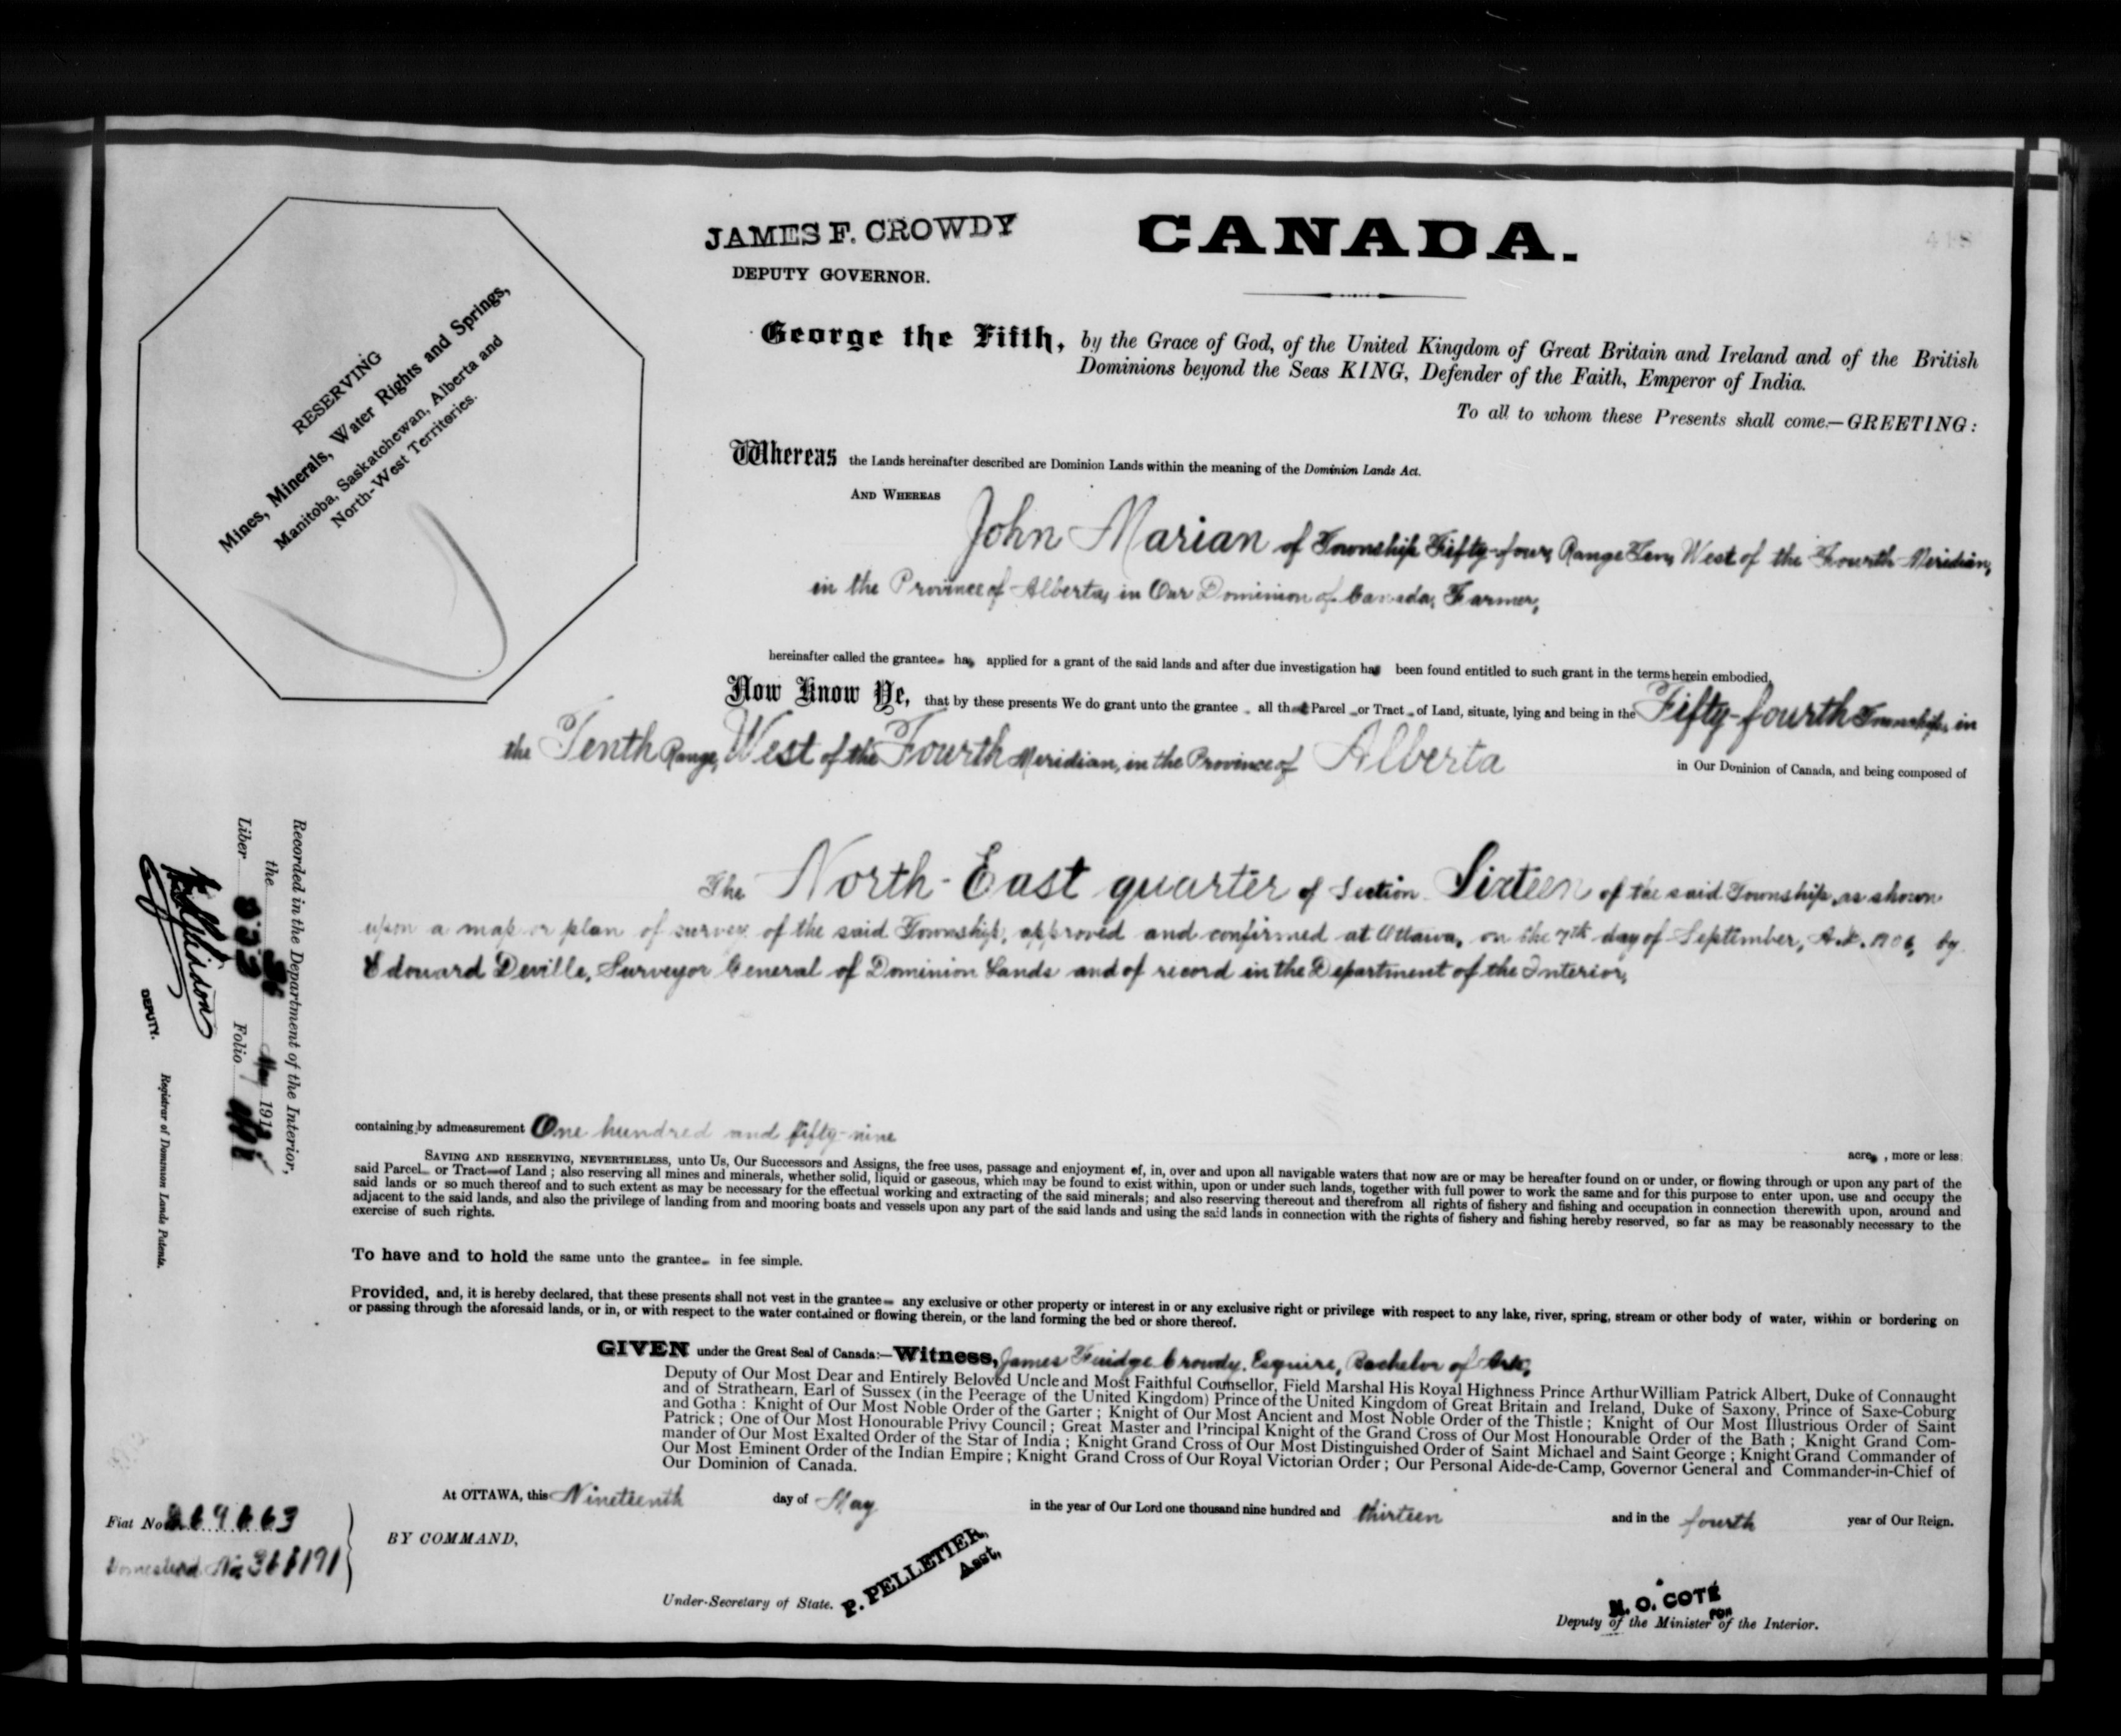 JAMES F. CROWDY
DEPUTY GOVERNOR.
CANADA.
418
RESERVING
Mines, Minerals, Water Rights and Springs,
Manitoba, Saskatchewan, Alberta and
North-West Territories.
George the Fifth, by the Grace of God, of the United Kingdom of Great Britain and Ireland and of the British
Dominions beyond the Seas KING, Defender of the Faith, Emperor of India.
To all to whom these Presents shall come.—GREETING:
Whereas the Lands hereinafter described are Dominion Lands within the meaning of the Dominion Lands Act.
AND WHEREAS
John Marian of Township Fifty-four, Range Ten, West of the Fourth Meridian,
in the Province of Alberta, in Our Dominion of Canada, Farmer,
hereinafter called the grantee has applied for a grant of the said lands and after due investigation has been found entitled to such grant in the terms herein embodied,
Now Know Ye, that by these presents We do grant unto the grantee all that Parcel or Tract of Land, situate, lying and being in the Fifty-fourth Township, in
the Tenth Range, West of the Fourth Meridian, in the Province of Alberta in Our Dominion of Canada, and being composed of
The North-East quarter of Section Sixteen of the said Township, as shown
upon a map or plan of survey of the said Township, approved and confirmed at Ottawa, on the 7th day of September, A.D. 1906, by
Edouard Deville, Surveyor General of Dominion Lands and of record in the Department of the Interior,
containing by admeasurement One hundred and fifty-nine
acres, more or less:
SAVING AND RESERVING, NEVERTHELESS, unto Us, Our Successors and Assigns, the free uses, passage and enjoyment of, in, over and upon all navigable waters that now are or may be hereafter found on or under, or flowing through or upon any part of the
said Parcel or Tract of Land; also reserving all mines and minerals, whether solid, liquid or gaseous, which may be found to exist within, upon or under such lands, together with full power to work the same and for this purpose to enter upon, use and occupy the
said lands or so much thereof and to such extent as may be necessary for the effectual working and extracting of the said minerals; and also reserving thereout and therefrom all rights of fishery and fishing and occupation in connection therewith upon, around and
adjacent to the said lands, and also the privilege of landing from and mooring boats and vessels upon any part of the said lands and using the said lands in connection with the rights of fishery and fishing hereby reserved, so far as may be reasonably necessary to the
exercise of such rights.
To have and to hold the same unto the grantee in fee simple.
Provided, and, it is hereby declared, that these presents shall not vest in the grantee any exclusive or other property or interest in or any exclusive right or privilege with respect to any lake, river, spring, stream or other body of water, within or bordering on
or passing through the aforesaid lands, or in, or with respect to the water contained or flowing therein, or the land forming the bed or shore thereof.
GIVEN under the Great Seal of Canada:—Witness, James Fuidge Crowdy, Esquire, Bachelor of Arts,
Deputy of Our Most Dear and Entirely Beloved Uncle and Most Faithful Counsellor, Field Marshal His Royal Highness Prince Arthur William Patrick Albert, Duke of Connaught
and of Strathearn, Earl of Sussex (in the Peerage of the United Kingdom) Prince of the United Kingdom of Great Britain and Ireland, Duke of Saxony, Prince of Saxe-Coburg
and Gotha: Knight of Our Most Noble Order of the Garter; Knight of Our Most Ancient and Most Noble Order of the Thistle; Knight of Our Most Illustrious Order of Saint
Patrick; One of Our Most Honourable Privy Council; Great Master and Principal Knight of the Grand Cross of Our Most Honourable Order of the Bath; Knight Grand Com-
mander of Our Most Exalted Order of the Star of India; Knight Grand Cross of Our Most Distinguished Order of Saint Michael and Saint George; Knight Grand Commander of
Our Most Eminent Order of the Indian Empire; Knight Grand Cross of Our Royal Victorian Order; Our Personal Aide-de-Camp, Governor General and Commander-in-Chief of
Our Dominion of Canada.
At OTTAWA, this Nineteenth day of May in the year of Our Lord one thousand nine hundred and thirteen and in the fourth year of Our Reign.
BY COMMAND,
P. PELLETIER,
Asst.
Under-Secretary of State.
N. O. COTÉ
FOR
Deputy of the Minister of the Interior.
Recorded in the Department of the Interior,
the May 191
Liber 333 Folio
DEPUTY.
Registrar of Dominion Lands Patents.
Fiat No. 269663
Homestead No.